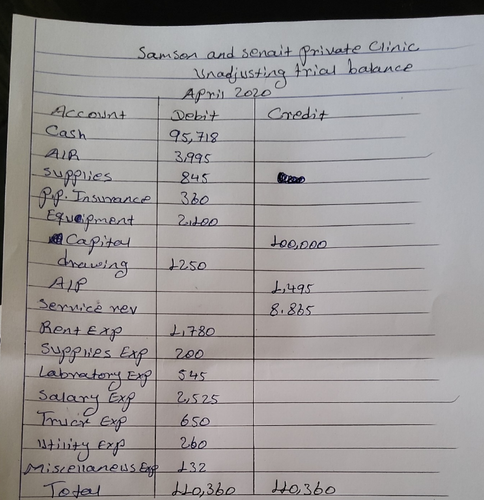 Samson and Senait Private Clinic
Unadjusting trial balance
April 2020
Account Debit Credit
Cash 95,718
A/R 3,995
Supplies 845
P.P. Insurance 360
Equipment 2,100
Capital 100,000
drawing 1250
A/P 1,495
Service rev 8.865
Rent Exp 1,780
Supplies Exp 200
Labratory Exp 545
Salary Exp 2,525
Truck Exp 650
Utility Exp 260
Miscellaneus Exp 132
Total 110,360 110,360